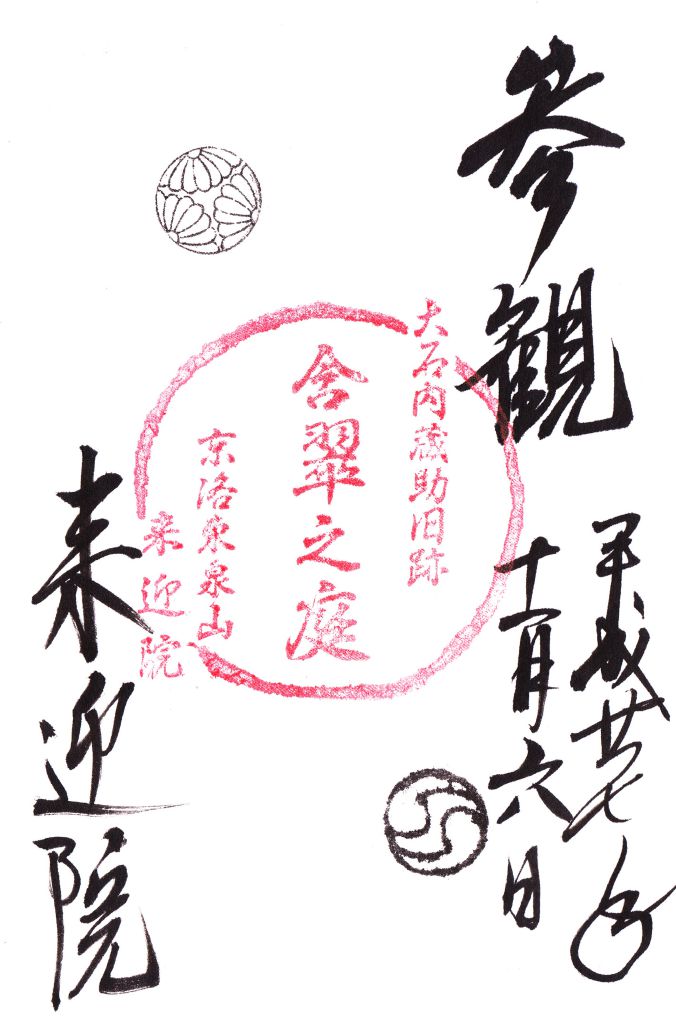 参観
平成廿七年
十一月六日
大石内蔵助旧跡
含翠之庭
东洛泉山
来迎院
来迎院